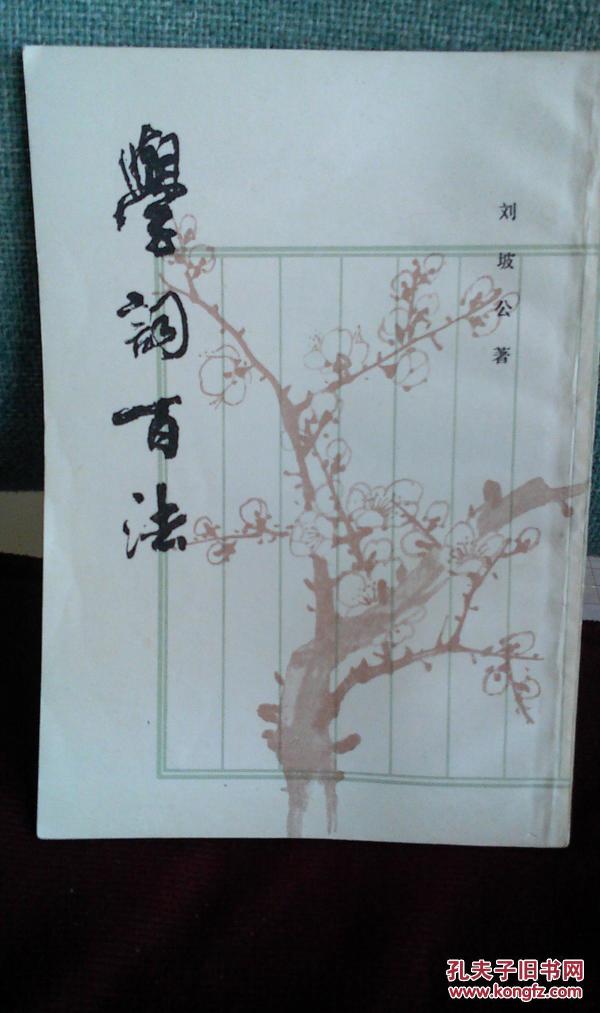 學詞百法
刘坡公著
孔夫子旧书网
www.kongfz.com